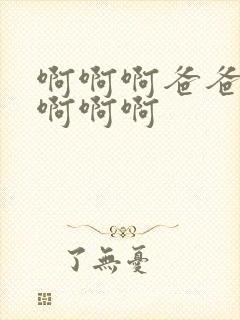 啊啊啊爸爸
啊啊啊
了無憂